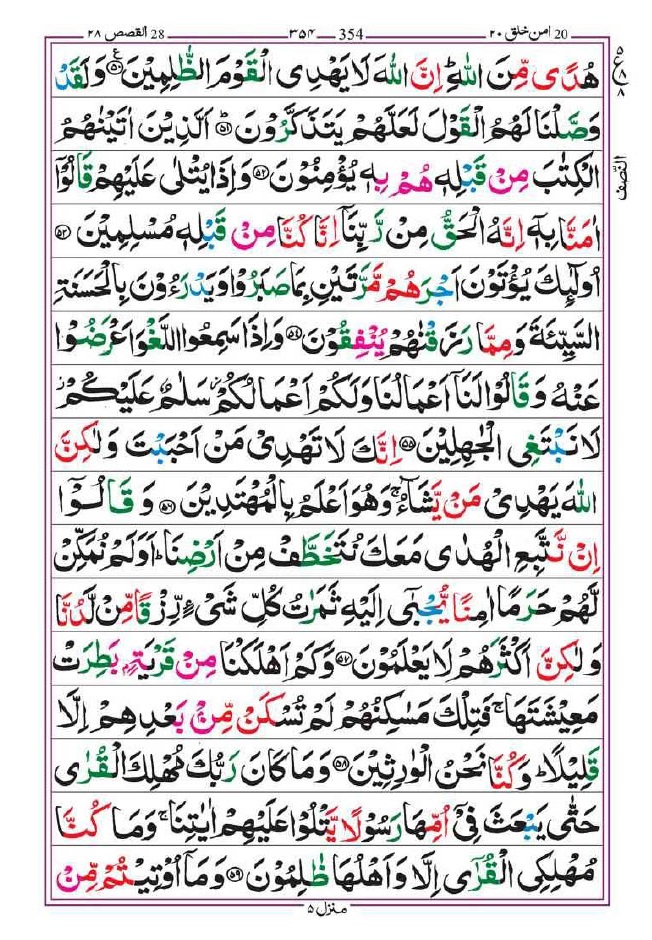 28 القصص ۲۸ — ۳۵۴ — 354 — 20 امن خلق ۲۰
هُدًى مِّنَ اللّٰهِ ؕ اِنَّ اللّٰهَ لَا يَهْدِى الْقَوْمَ الظّٰلِمِيْنَ ﴿۵۰﴾ وَلَقَدْ
وَصَّلْنَا لَهُمُ الْقَوْلَ لَعَلَّهُمْ يَتَذَكَّرُوْنَ ﴿۵۱﴾ اَلَّذِيْنَ اٰتَيْنٰهُمُ
الْكِتٰبَ مِنْ قَبْلِهٖ هُمْ بِهٖ يُؤْمِنُوْنَ ﴿۵۲﴾ وَاِذَا يُتْلٰى عَلَيْهِمْ قَالُوْۤا
اٰمَنَّا بِهٖۤ اِنَّهُ الْحَقُّ مِنْ رَّبِّنَاۤ اِنَّا كُنَّا مِنْ قَبْلِهٖ مُسْلِمِيْنَ ﴿۵۳﴾
اُولٰٓئِكَ يُؤْتَوْنَ اَجْرَهُمْ مَّرَّتَيْنِ بِمَا صَبَرُوْا وَيَدْرَءُوْنَ بِالْحَسَنَةِ
السَّيِّئَةَ وَمِمَّا رَزَقْنٰهُمْ يُنْفِقُوْنَ ﴿۵۴﴾ وَاِذَا سَمِعُوا اللَّغْوَ اَعْرَضُوْا
عَنْهُ وَقَالُوْا لَنَاۤ اَعْمَالُنَا وَلَكُمْ اَعْمَالُكُمْ سَلٰمٌ عَلَيْكُمْ
لَا نَبْتَغِى الْجٰهِلِيْنَ ﴿۵۵﴾ اِنَّكَ لَا تَهْدِىْ مَنْ اَحْبَبْتَ وَلٰكِنَّ
اللّٰهَ يَهْدِىْ مَنْ يَّشَآءُ ۚ وَهُوَ اَعْلَمُ بِالْمُهْتَدِيْنَ ﴿۵۶﴾ وَقَالُوْۤا
اِنْ نَّتَّبِعِ الْهُدٰى مَعَكَ نُتَخَطَّفْ مِنْ اَرْضِنَا ؕ اَوَلَمْ نُمَكِّنْ
لَّهُمْ حَرَمًا اٰمِنًا يُّجْبٰٓى اِلَيْهِ ثَمَرٰتُ كُلِّ شَىْءٍ رِّزْقًا مِّنْ لَّدُنَّا
وَلٰكِنَّ اَكْثَرَهُمْ لَا يَعْلَمُوْنَ ﴿۵۷﴾ وَكَمْ اَهْلَكْنَا مِنْ قَرْيَةٍۭ بَطِرَتْ
مَعِيْشَتَهَا ۚ فَتِلْكَ مَسٰكِنُهُمْ لَمْ تُسْكَنْ مِّنْۢ بَعْدِهِمْ اِلَّا
قَلِيْلًا ؕ وَكُنَّا نَحْنُ الْوٰرِثِيْنَ ﴿۵۸﴾ وَمَا كَانَ رَبُّكَ مُهْلِكَ الْقُرٰى
حَتّٰى يَبْعَثَ فِىْۤ اُمِّهَا رَسُوْلًا يَّتْلُوْا عَلَيْهِمْ اٰيٰتِنَا ۚ وَمَا كُنَّا
مُهْلِكِى الْقُرٰٓى اِلَّا وَاَهْلُهَا ظٰلِمُوْنَ ﴿۵۹﴾ وَمَاۤ اُوْتِيْتُمْ مِّنْ
منزل ۵
۵
ع
۸
۸
النّصف